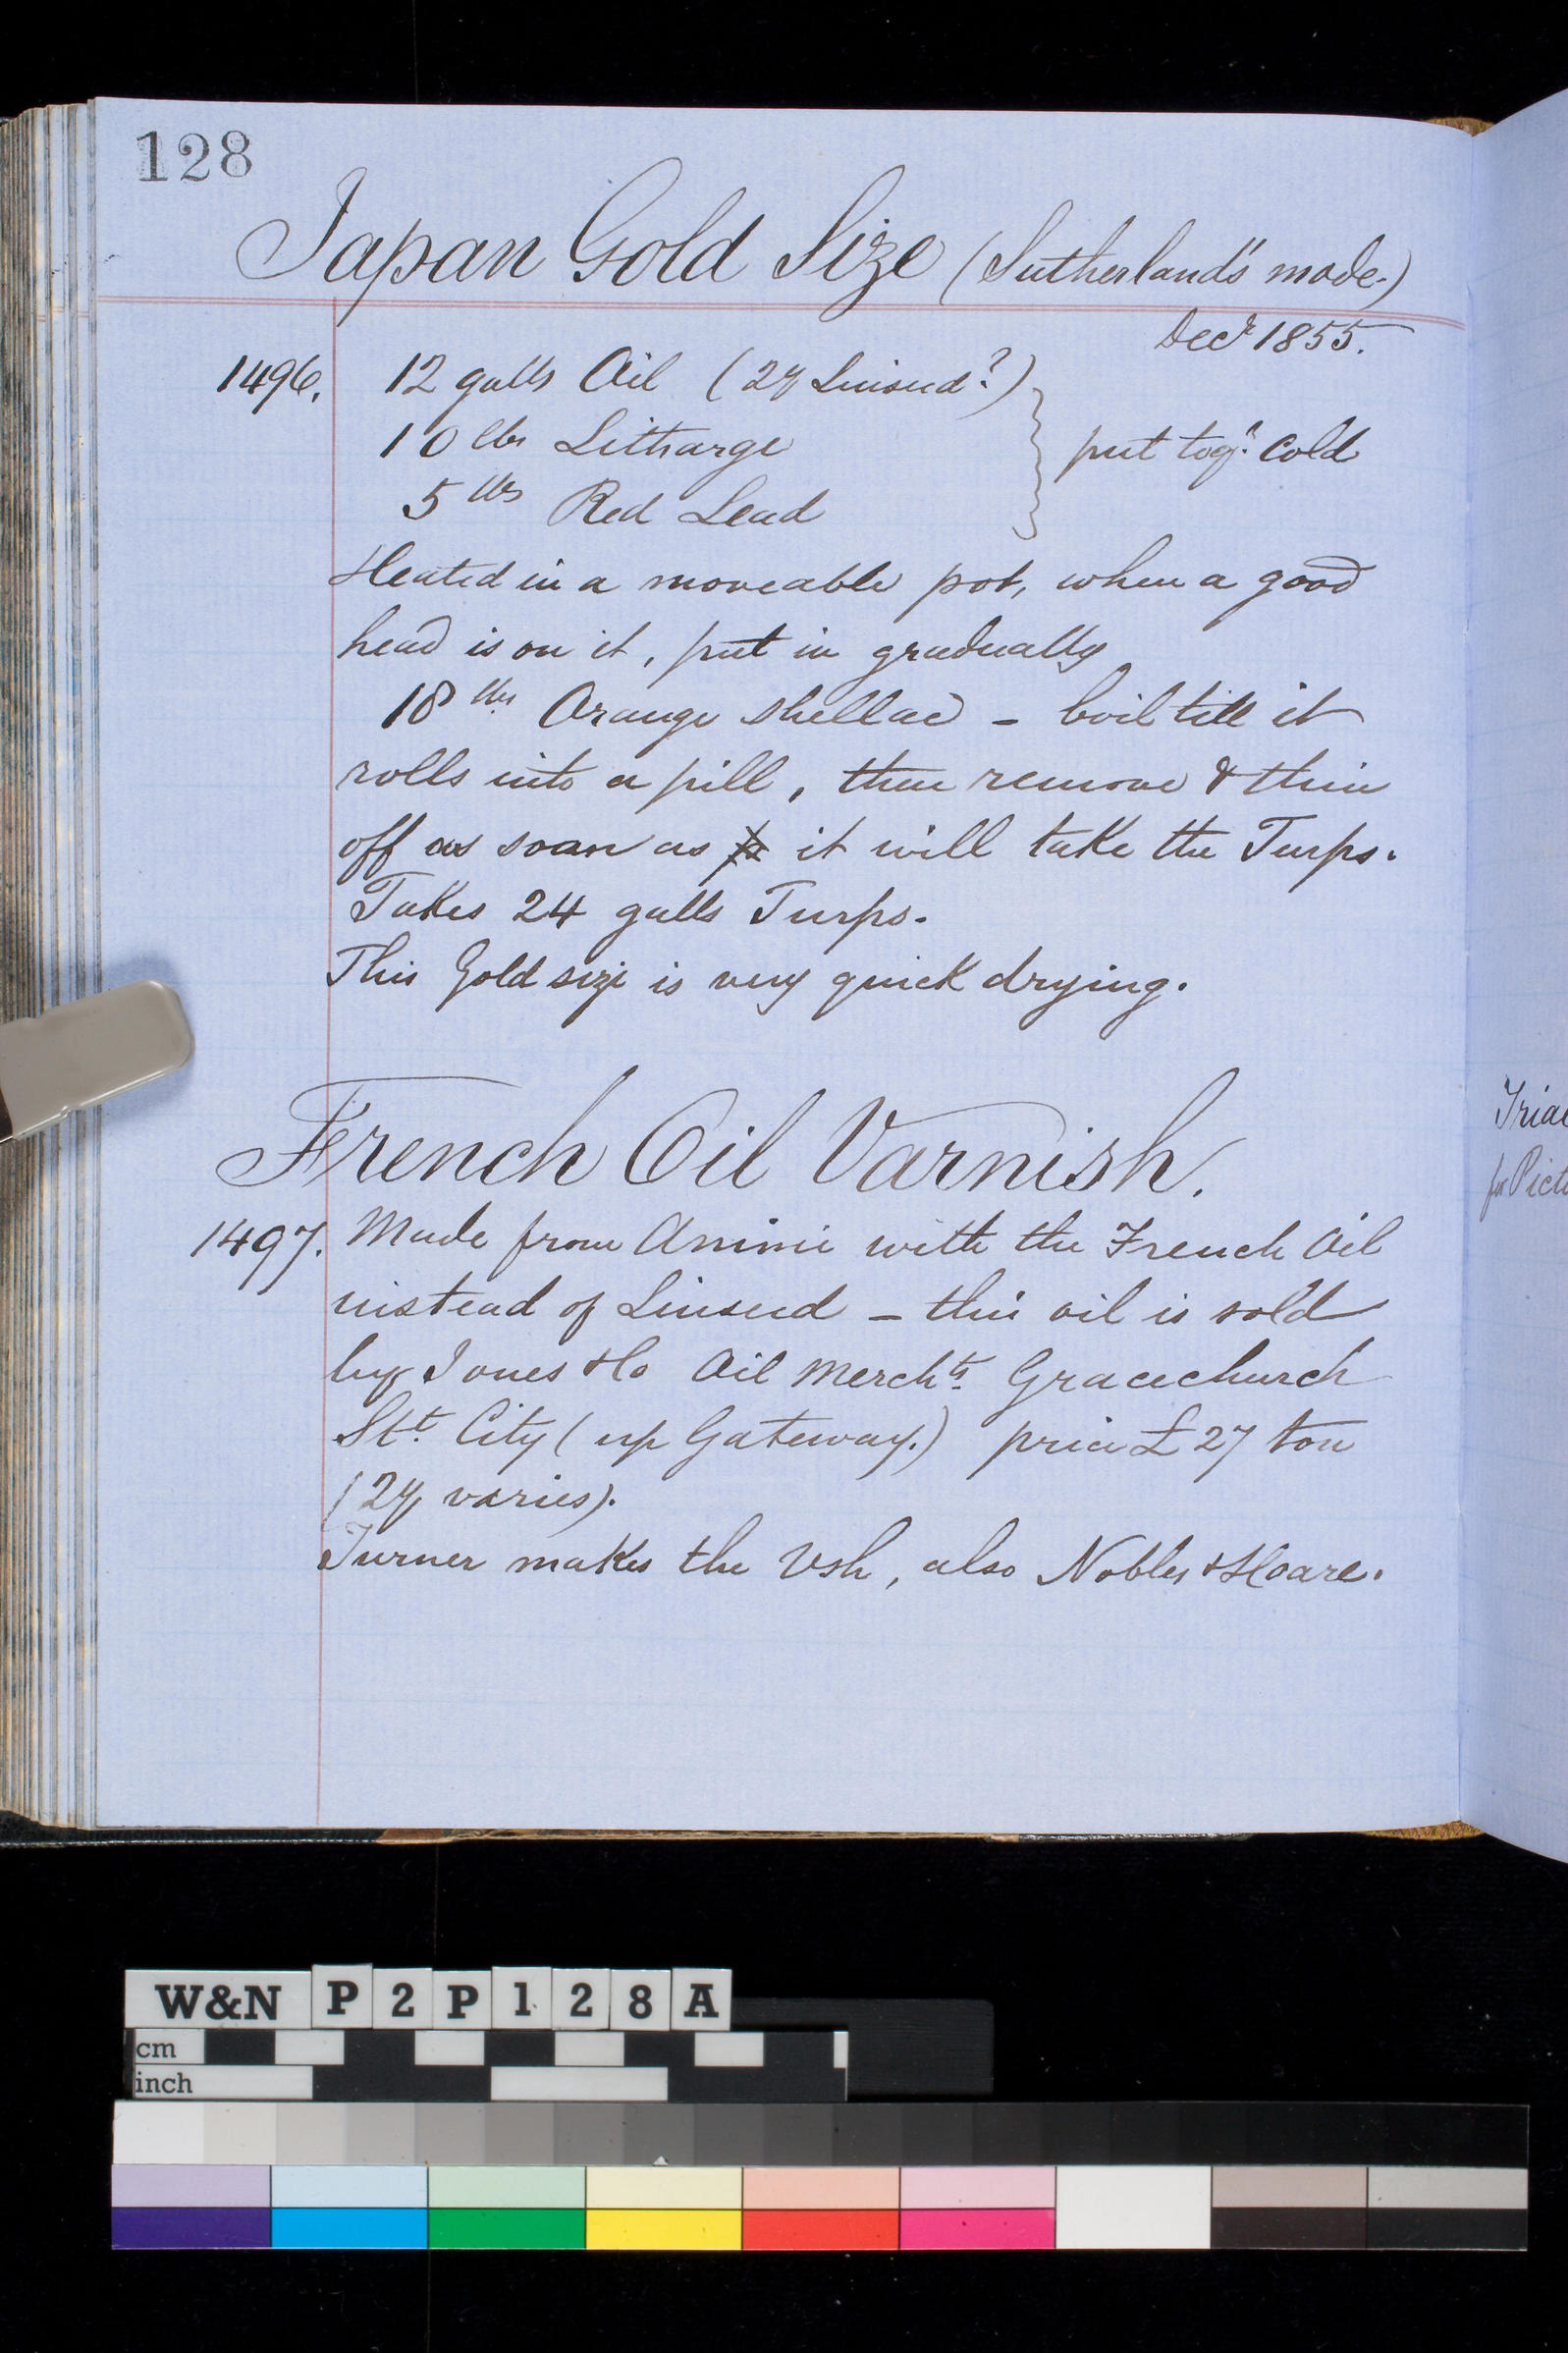 128
Japan Gold Size (Sutherland's mode.)
Decr 1855.
1496. 12 galls Oil (Qy Linseed?)
10 lbs Litharge
put togr. Cold
5 lbs Red Lead
Heated in a moveable pot, when a good
head is on it, put in gradually
18 lbs Orange Shellac – boil till it
rolls into a pill, then remove & thin
off as soon as it will take the Turps.
Takes 24 galls Turps.
This Gold size is very quick drying.
French Oil Varnish.
1497. Made from Animi with the French Oil
instead of Linseed – this oil is sold
by Jones & Co Oil Merchts. Gracechurch
Stt. City (up Gateway.) price £27 ton
(Qy varies).
Turner makes the Vsh, also Nobles & Hoare.
Trial
for Pict
W&N P2P128A
cm
inch